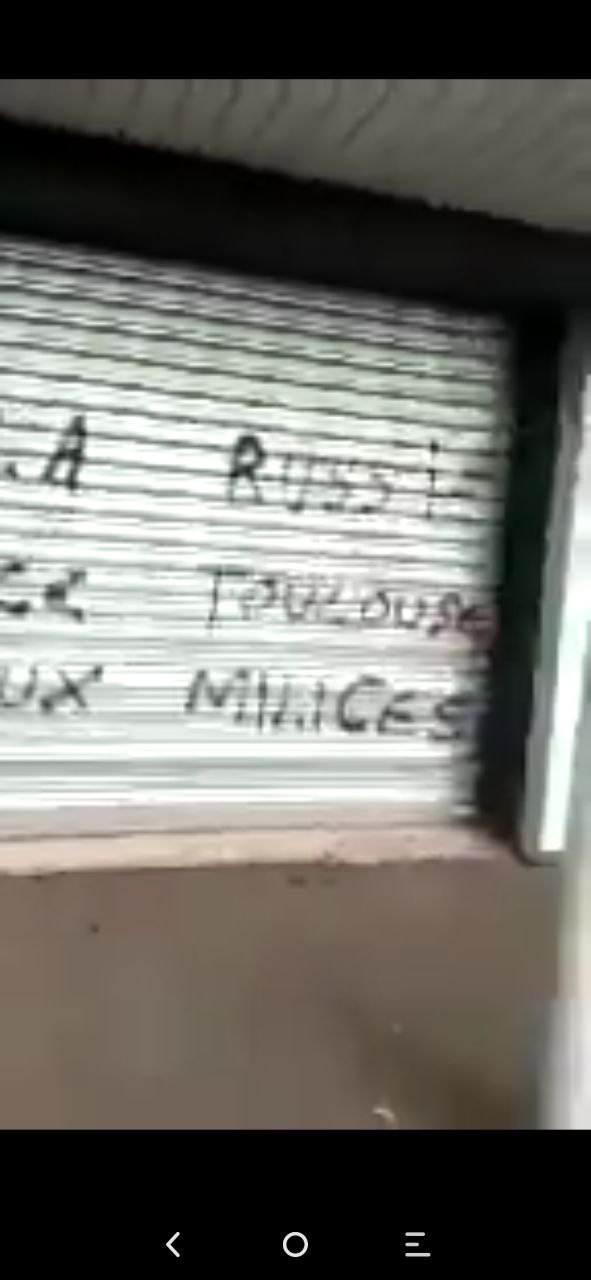 .A RUSSI
TOULOUSE
UX MILICES